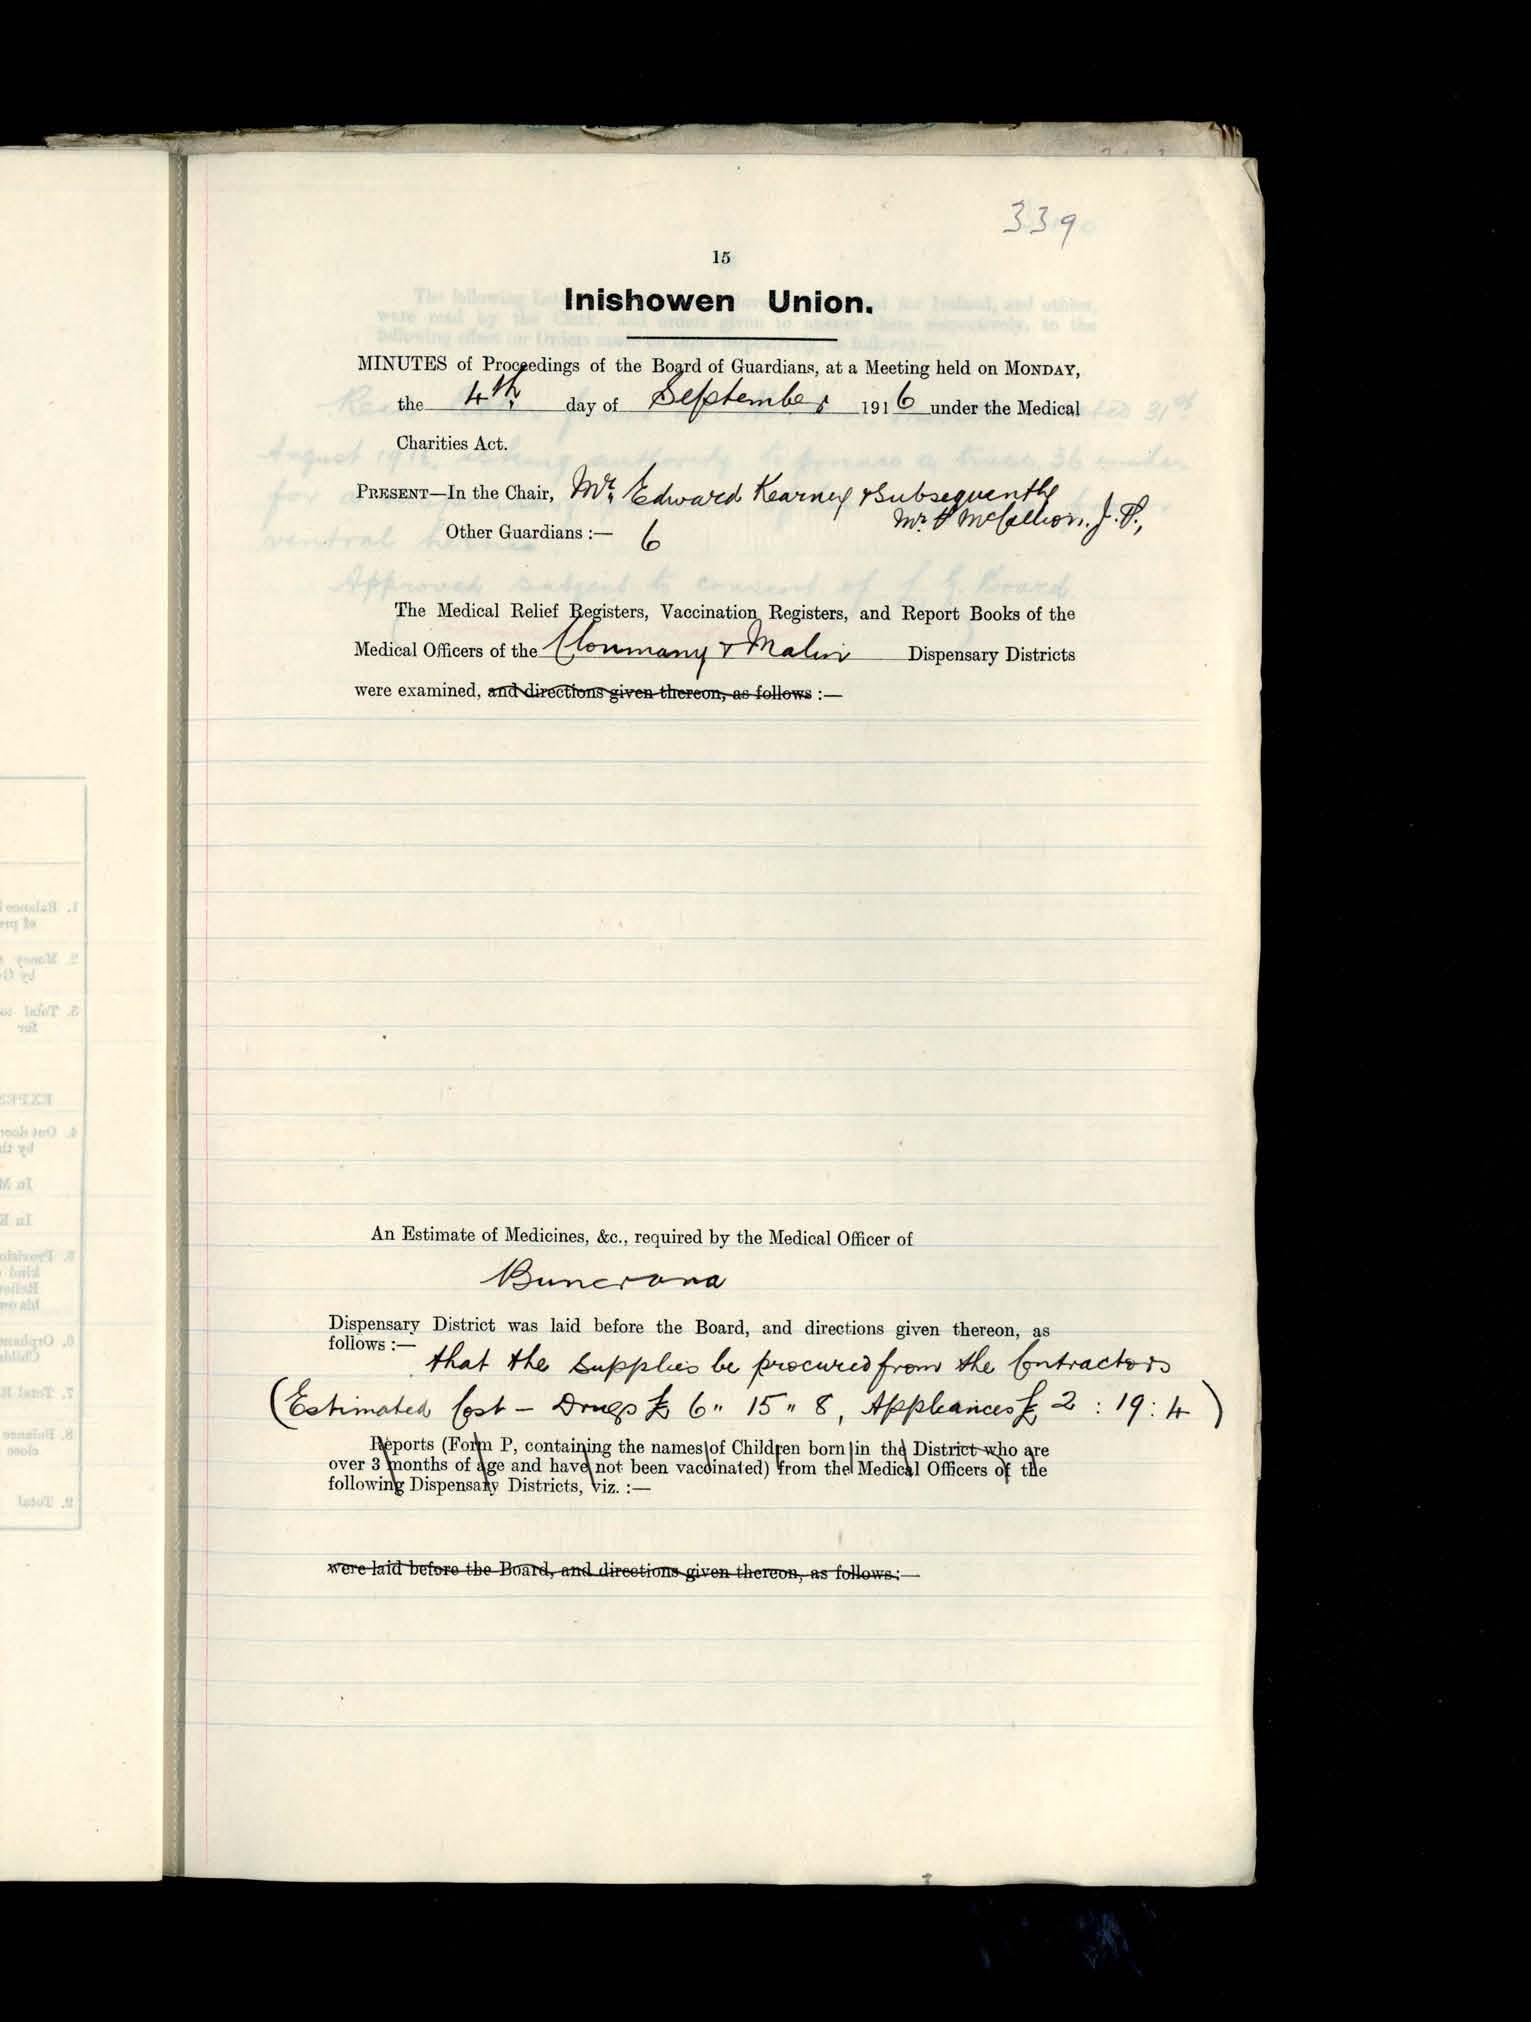 339
15
Inishowen Union.
MINUTES of Proceedings of the Board of Guardians, at a Meeting held on MONDAY,
the 4th. day of September 1916 under the Medical
Charities Act.
PRESENT—In the Chair, Mr. Edward Kearney & Subsequently
Mr. McCallion. J. P.,
Other Guardians :— 6
The Medical Relief Registers, Vaccination Registers, and Report Books of the
Medical Officers of the Clonmany & Malin Dispensary Districts
were examined, and directions given thereon, as follows :—
An Estimate of Medicines, &c., required by the Medical Officer of
Buncrana
Dispensary District was laid before the Board, and directions given thereon, as
follows :—
that the supplies be procured from the Contractors
(Estimated Cost — Drugs £ 6 " 15 " 8, Appliances £ 2 : 19 : 4)
Reports (Form P, containing the names of Children born in the District who are
over 3 months of age and have not been vaccinated) from the Medical Officers of the
following Dispensary Districts, viz. :—
were laid before the Board, and directions given thereon, as follows:—